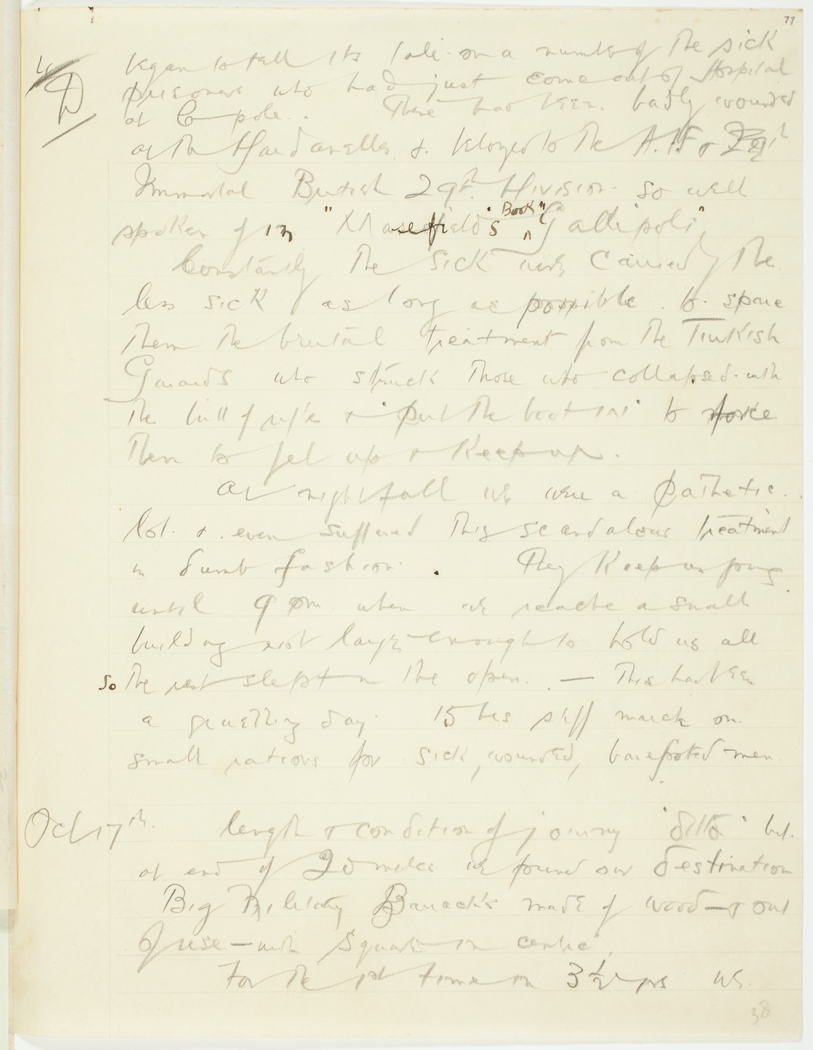 77
D began to tell its tale on a number of the sick
prisoners who had just come out of Hospital
at pole. These had been badly wounded
at the Dardanelles & belonged to the A.I.F &
Immortal British 29th Division so well
spoken of in "Masefield's Book "Gallipoli",
Constantly the sick were carried by the
less sick as long as possible to spare
them the brutal treatment from the Turkish
Guards who struck those who collapsed with
the butt of rifle & 'put the boot in' to force
them to get up & keep up.
At nightfall we were a pathetic
lot & even suffered this scandalous treatment
in dumb fashion. They keep us going
until 9 pm when we reach a small
building not large enough to hold us all
So the rest slept in the open. — This had been
a gruelling day 15 hrs stiff march on
small rations for sick, wounded, barefooted men
Oct 17th. length & condition of journey 'ditto' but
at end of 20 miles we found our destination
Big Military Barracks made of wood — & out
of use — with square in centre.
For the 1st time in 3½ yrs we
38